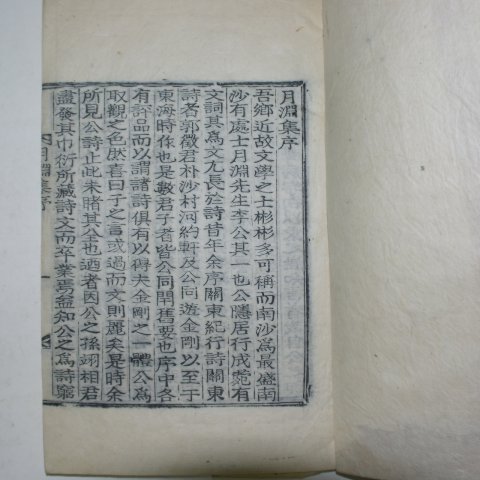 月淵集序
吾鄕近故文學之士彬彬多可稱而南沙爲最盛南
沙有處士月淵先生李公其一也公隱居行成霓有
文詞其爲文尤長於詩昔年余序關東紀行詩關東
詩者郭徵君朴沙村河約軒及公同遊金剛以至于
東海時作也是數君子者皆公同閈舊要也序中各
有評品而以謂諸詩俱有以得夫金剛之一體公爲
取觀之色然喜曰子之言或過而文則麗矣是時余
所見公詩止此未睹其公也迺者因公之孫翊相君
盡發其巾衍所藏詩文而卒業焉益知公之爲詩窮
月淵集序